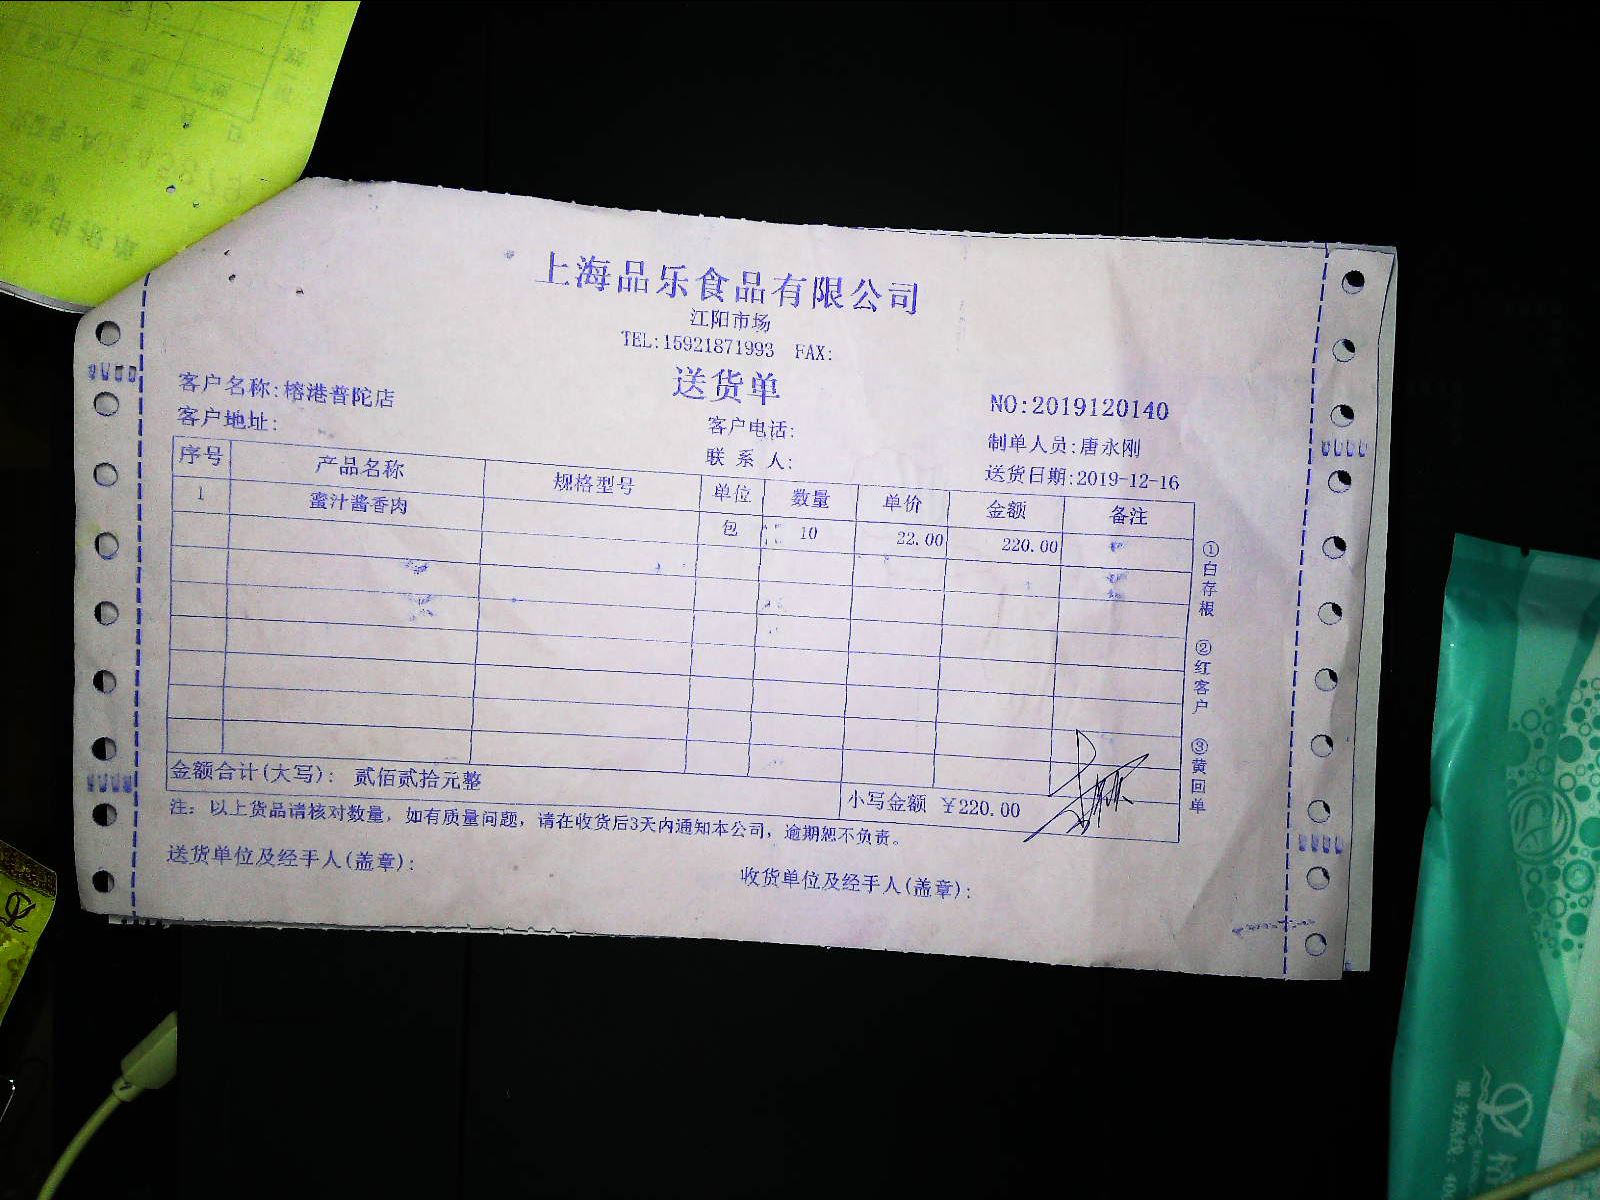 上海品乐食品有限公司
江阳市场
TEL:15921871993 FAX:
送货单
客户名称:榕港普陀店
NO:2019120140
客户地址:
客户电话:
制单人员:唐永刚
联 系 人:
送货日期:2019-12-16
序号 产品名称 规格型号 单位 数量 单价 金额 备注
1 蜜汁酱香肉 包 10 22.00 220.00
①白存根 ②红客户 ③黄回单
金额合计(大写): 贰佰贰拾元整 小写金额 ￥220.00
注: 以上货品请核对数量, 如有质量问题, 请在收货后3天内通知本公司, 逾期恕不负责。
送货单位及经手人(盖章):
收货单位及经手人(盖章):